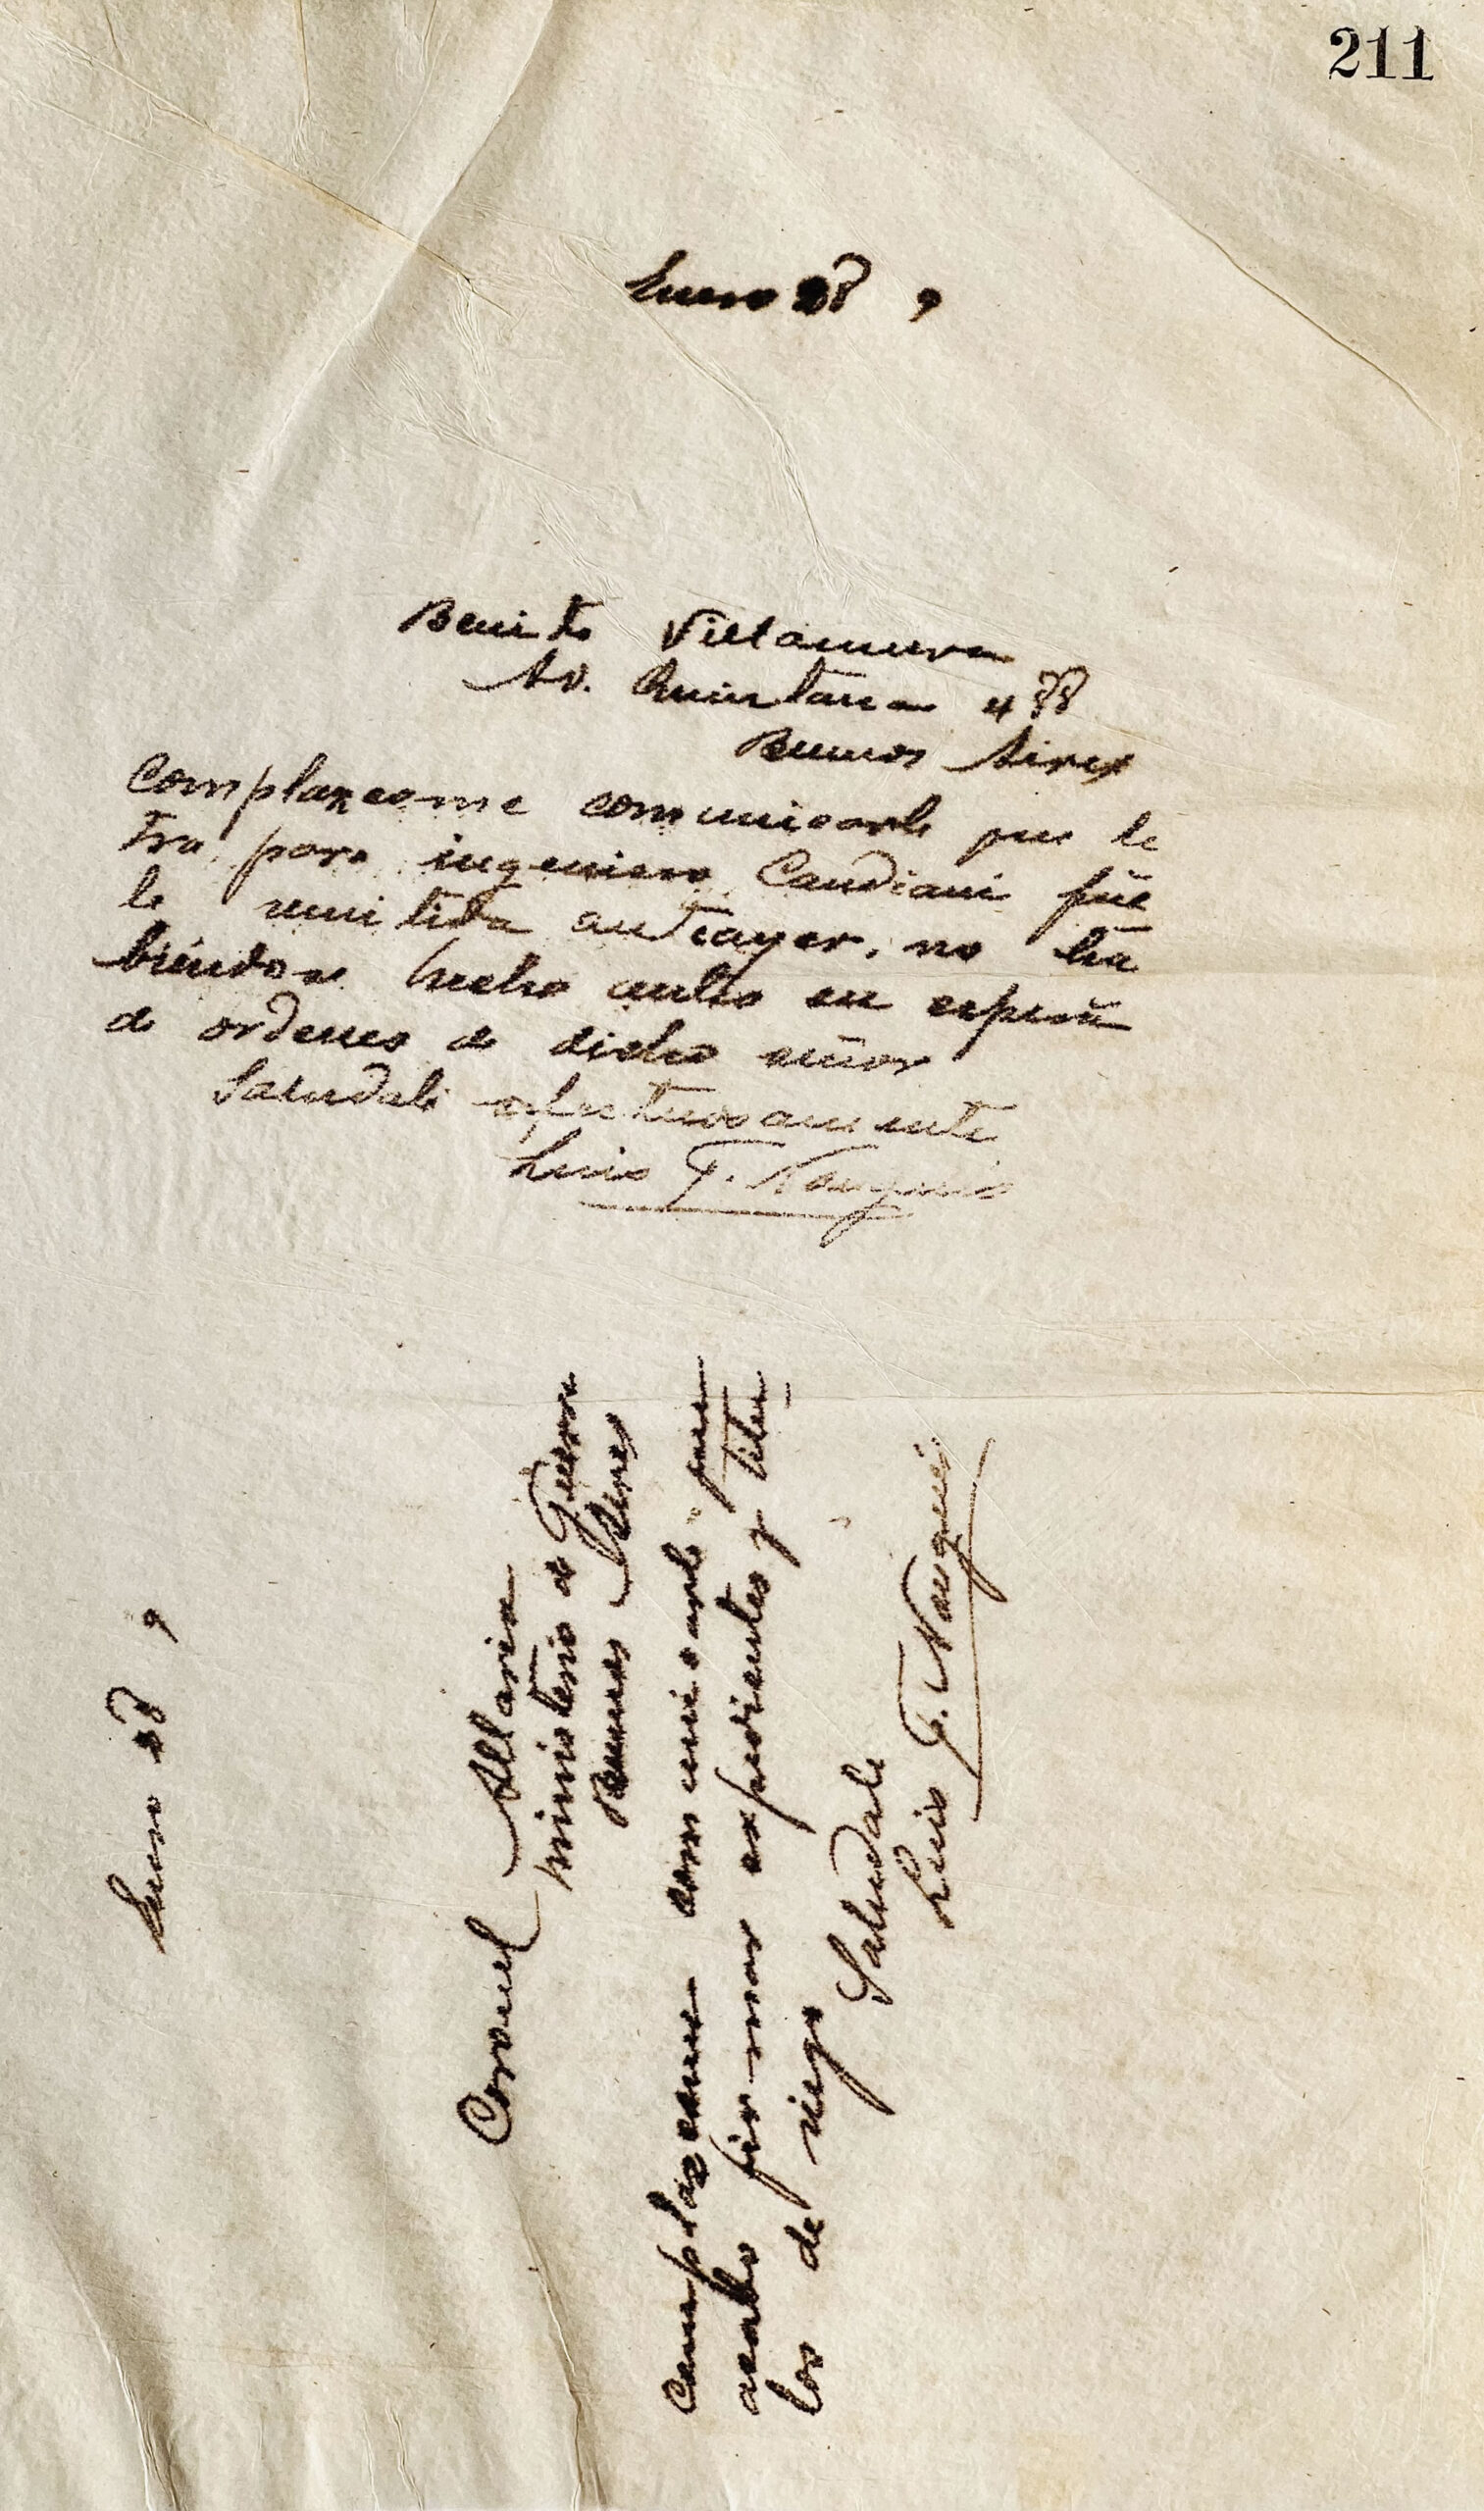 211
Enero 28 9
Benito Villanueva
Av. Quintana 488
Buenos Aires
Complazcome comunicarle que le
tra para ingeniero Candiani fue
le remitida anteayer, no ha
biendose hecho antes en espera
de ordenes de dicho señor
Saludale afectuosamente
Luis F. Nougués
Enero 28 9
Coronel Allaria
Ministerio de Guerra
Buenos Aires
Complazcome comunicarle que
acabo firmar expedientes y titu
los de riego
Saludale
Luis F. Nougués